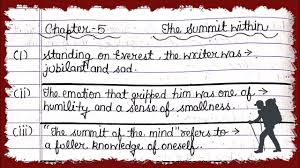 Chapter-5 The Summit within
(i) standing on Everest, the writer was →
jubilant and sad.
(ii) The emotion that gripped him was one of →
humility and a sense of smallness.
(iii) "The summit of the mind" refers to →
a fuller knowledge of oneself.